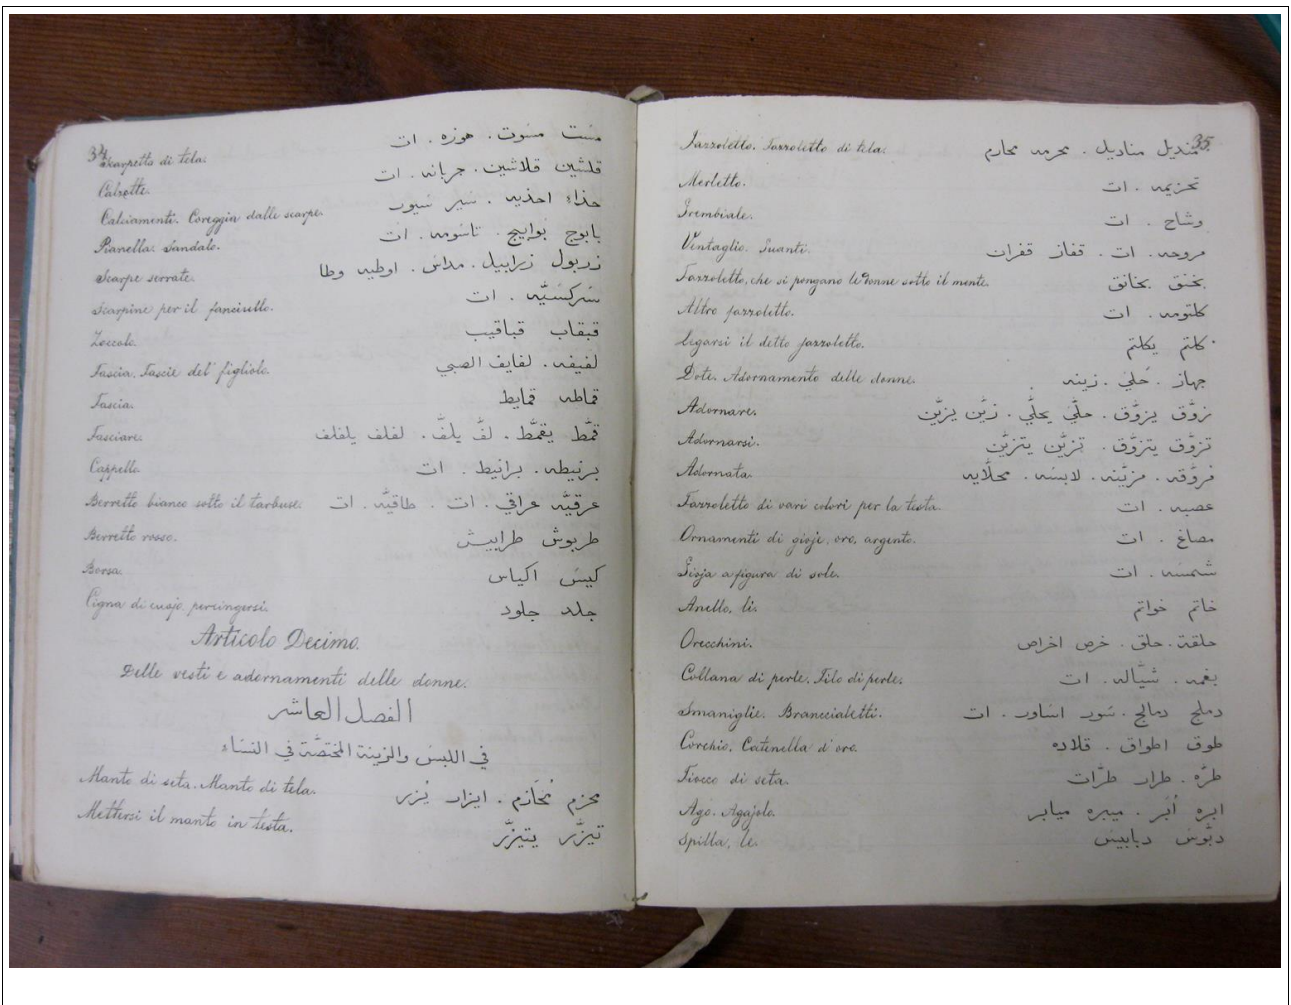 34
Scarpetta di tela. مست مسوت . هوزه . ات
Calzette. قلشين قلاشين . جربانه . ات
Calciamenti. Coreggia dalle scarpe. حذاء احذيه . سير سيور
Pianella. Sandalo. بابوج بوابيج . تاسومه . ات
Scarpe serrate. زربول زرابيل . مداس . اوطيه وطا
Scarpine per il fanciullo. سركسيّه . ات
Zoccolo. قبقاب قباقيب
Fascia. Fascie del figliolo. لفيفه . لفايف الصبي
Fascia. قماطه قمايط
Fasciare. قمّط يقمّط . لفّ يلفّ . لفلف يلفلف
Cappello. برنيطه . برانيط . ات
Berretto bianco sotto il tarbuse. عرقيّه عراقي . ات . طاقيّه . ات
Berretto rosso. طربوش طرابيش
Borsa. كيس اكياس
Cigna di cuojo percingersi. جلد جلود
Articolo Decimo.
Delle vesti e adornamenti delle donne.
الفصل العاشر
في اللبس والزينة المختصّة في النساء
Manto di seta. Manto di tela. محزم مَحَازم . ايزار يُزر
Mettersi il manto in testa. تيزّر يتيزّر
35
Fazzoletto. Fazzoletto di tela. منديل مناديل . محرمه محارم
Merletto. تخريمه . ات
Grembiale. وشاح . ات
Ventaglio. Guanti. مروحه . ات . قفاز قفزات
Fazzoletto, che si pongano le donne sotto il mente. بخنق بخانق
Altro fazzoletto. كلتومه . ات
Legarsi il detto fazzoletto. كلتم يكلتم
Dote. Adornamento delle donne. جهاز . حُليّ . زينه
Adornare. زوَّق يزوَّق . حلَّي يحلَّي . زيَّن يزيَّن
Adornarsi. تزوَّق يتزوَّق . تزيَّن يتزيَّن
Adornata. مزوَّقه . مزيَّنه . لابسه . محلَّايه
Fazzoletto di vari colori per la testa. عصبه . ات
Ornamenti di gioje, oro, argento. مصاغ . ات
Gioja a figura di sole. شمسه . ات
Anello, li. خاتم خواتم
Orecchini. حلقة . حلق . خرص اخراص
Collana di perle. Filo di perle. بغمه . شيَّاله . ات
Smaniglie. Branccialetti. دملج دمالج . سور اساور . ات
Cerchio. Catenella d'oro. طوق اطواق . قلاده
Fiocco di seta. طرّه . طرار طرّات
Ago. Agajolo. ابره اُبَر . ميبره ميابر
Spilla, le. دبّوس دبابيس